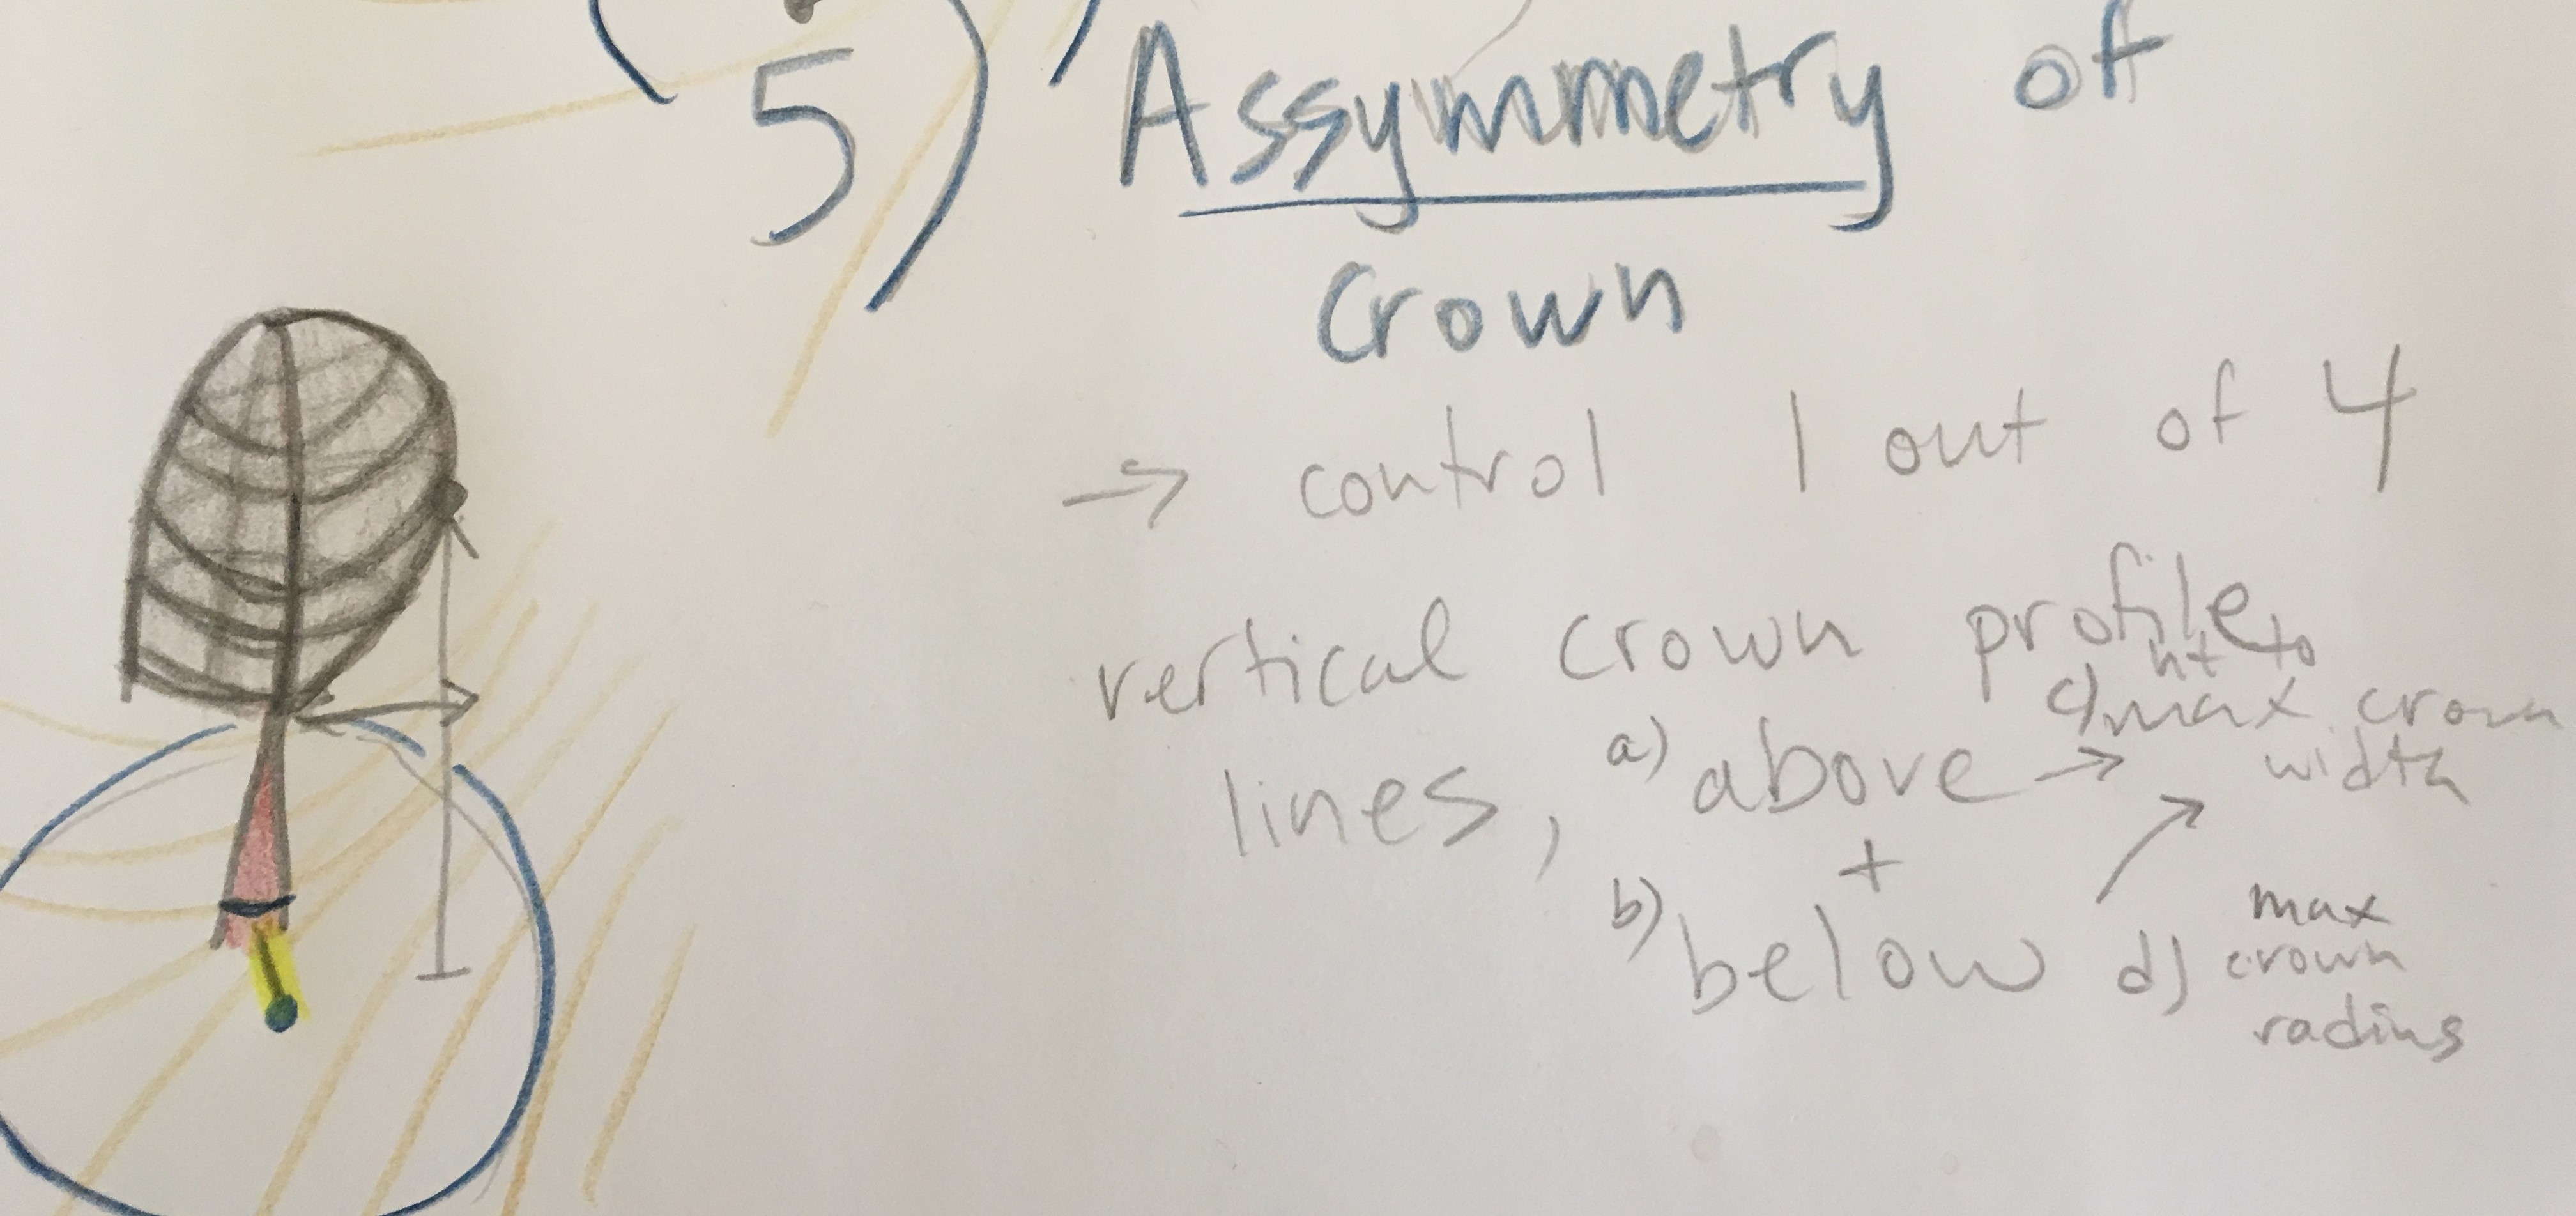 5) Assymmetry of
Crown
→ control 1 out of 4
vertical crown profile
lines, a) above → c) ht to max crown width
+
b) below d) max crown radius